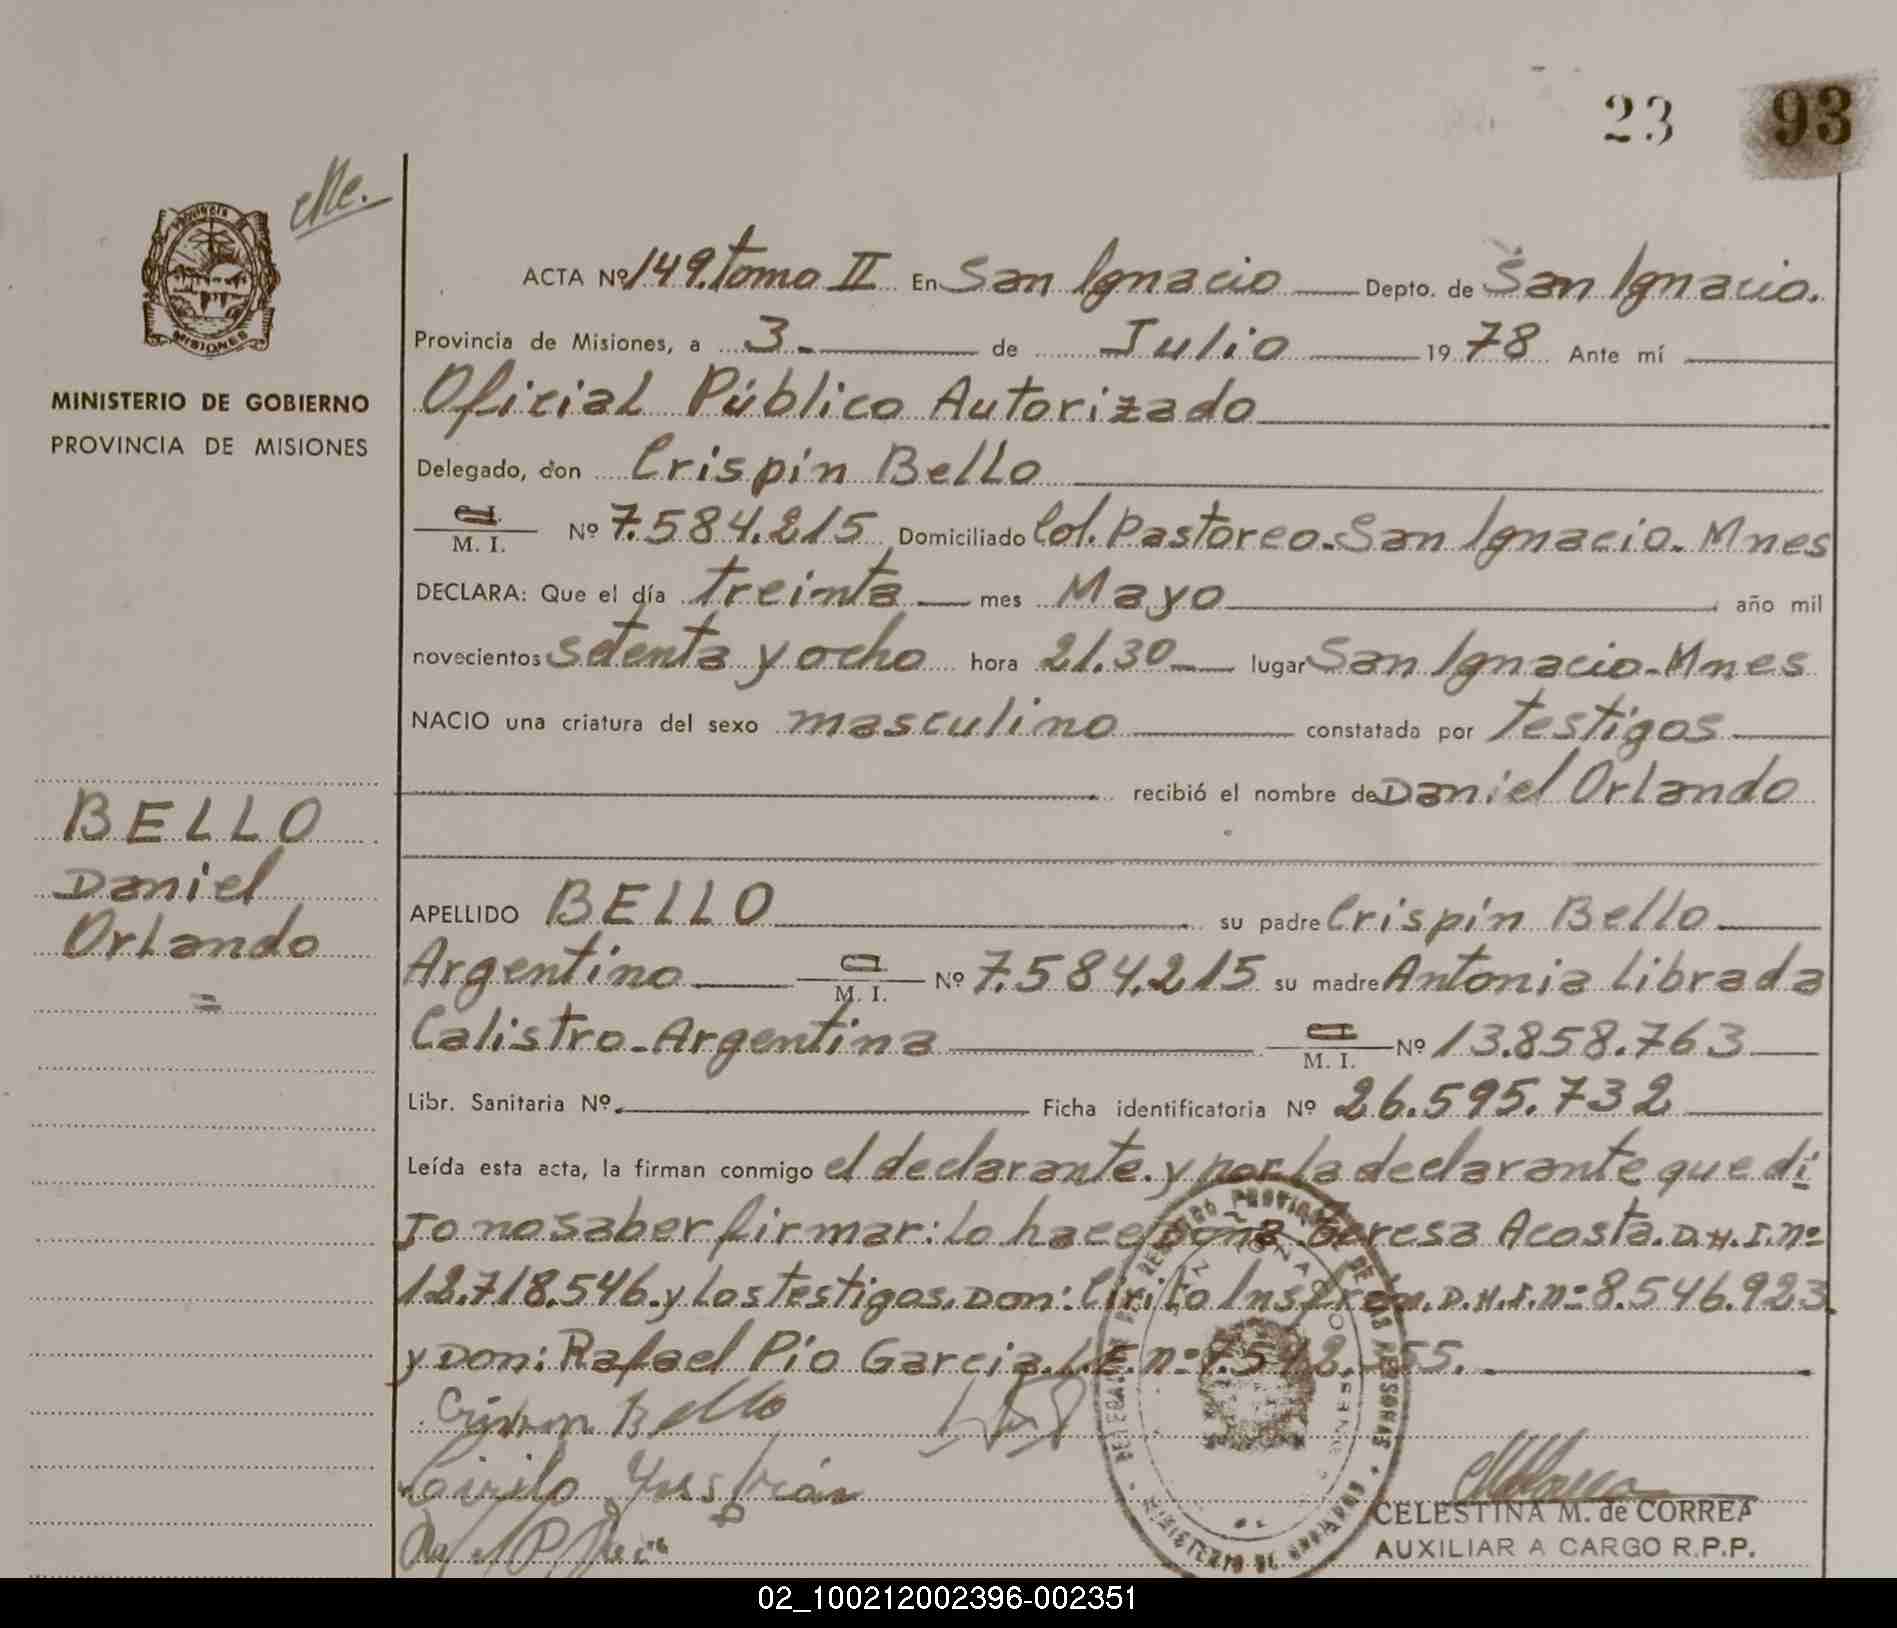 23 93
PROVINCIA DE MISIONES
MINISTERIO DE GOBIERNO
PROVINCIA DE MISIONES
ACTA Nº 149. tomo II En San Ignacio Depto. de San Ignacio.
Provincia de Misiones, a 3 de Julio 1978 Ante mí
Oficial Público Autorizado
Delegado, don Crispín Bello
C.I.
M. I. Nº 7.584.215 Domiciliado Col. Pastoreo-San Ignacio-Mnes
DECLARA: Que el día treinta mes Mayo año mil
novecientos setenta y ocho hora 21.30 lugar San Ignacio-Mnes
NACIO una criatura del sexo masculino constatada por testigos
recibió el nombre de Daniel Orlando
BELLO
Daniel
Orlando
=
APELLIDO BELLO su padre Crispín Bello
Argentino M. I. Nº 7.584.215 su madre Antonia Librada
Calistro-Argentina M. I. Nº 13.858.763
Libr. Sanitaria Nº Ficha identificatoria Nº 26.595.732
Leída esta acta, la firman conmigo el declarante. y por la declarante que di
jo no saber firmar: lo hace Doña Teresa Acosta. D.N.I. nº
12.718.546. y los testigos. Don: Cirilo Insfrán. D.N.I. nº 8.546.923.
y Don: Rafael Pío Garcia. L.E. nº 7.542. 55.
Crispin Bello
Cirilo Insfrán
CELESTINA M. de CORREA
AUXILIAR A CARGO R.P.P.
02_100212002396-002351